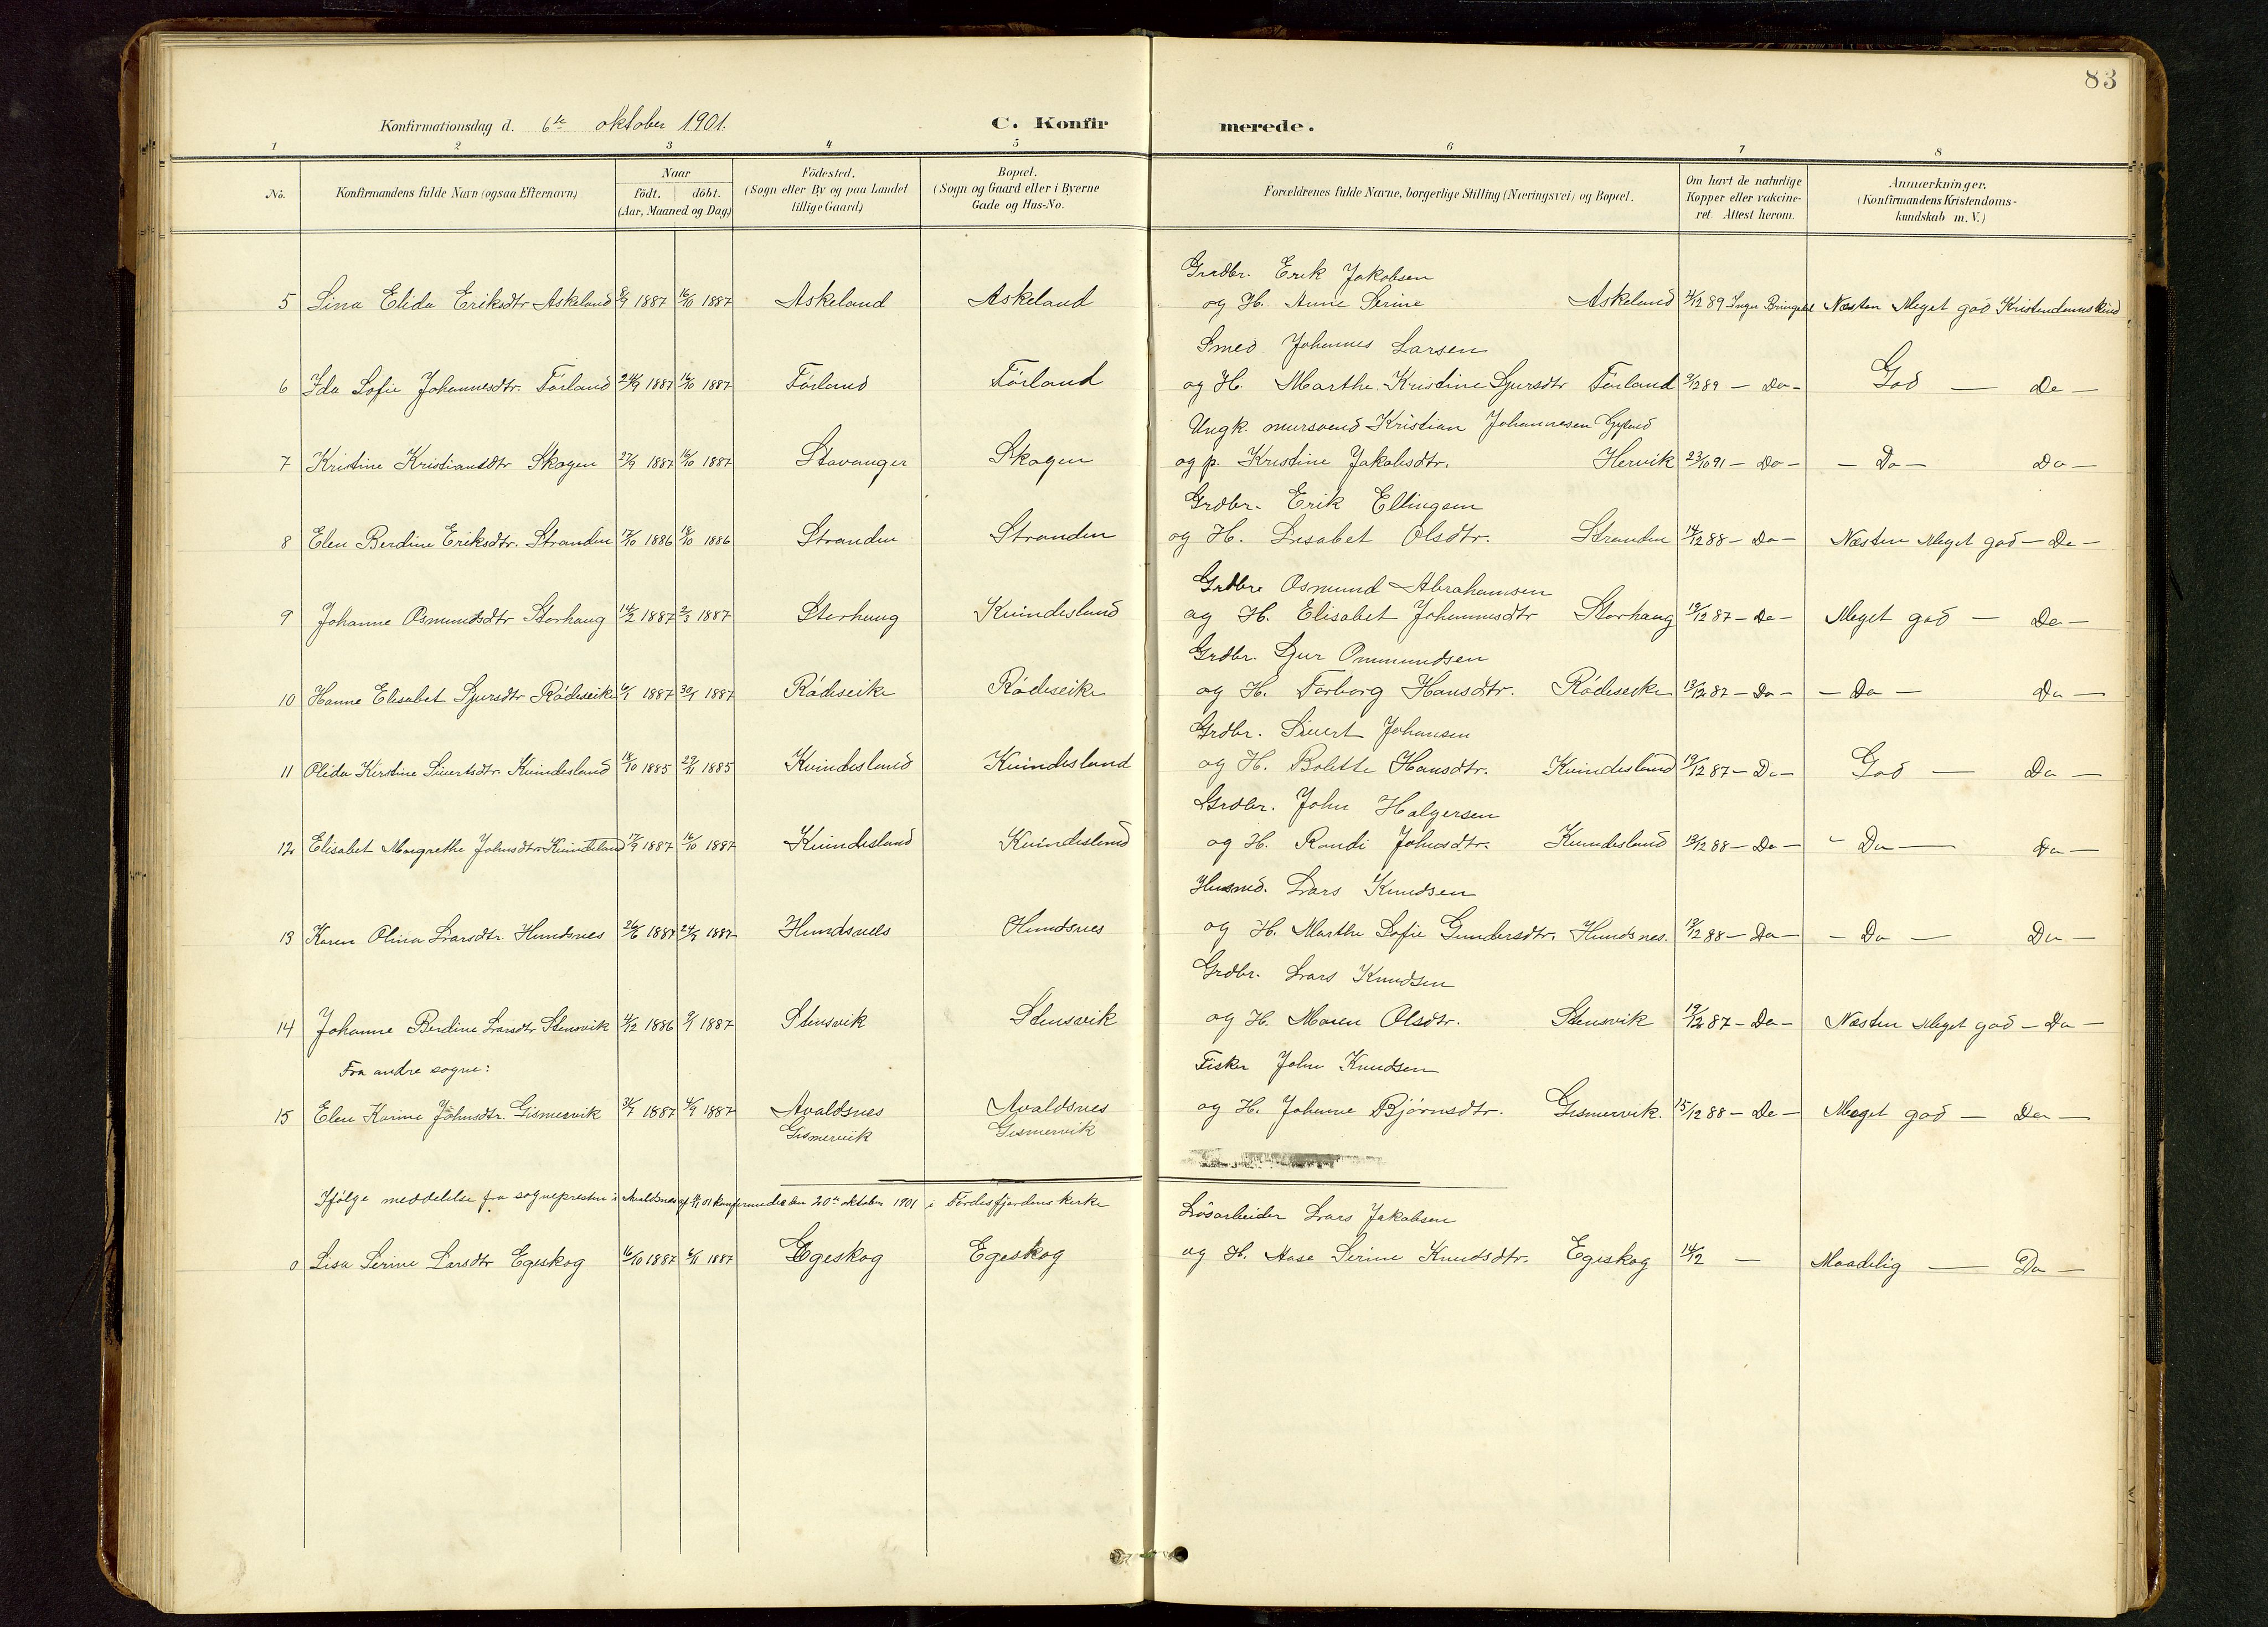 83
Konfirmationsdag d. 6te oktober 1901.
C. Konfirmerede.
1 2 3 4 5 6 7 8
No.
Konfirmandens fulde Navn (ogsaa Efternavn)
Naar
födt. döbt.
(Aar, Maaned og Dag)
Födested.
(Sogn eller By og paa Landet
tillige Gaard)
Bopæl.
(Sogn og Gaard eller i Byerne
Gade og Hus-No.
Forældrenes fulde Navne, borgerlige Stilling (Næringsvei) og Bopæl.
Om havt de naturlige
Kopper eller vakcine-
ret Attest herom.
Anmærkninger.
(Konfirmandens Kristendoms-
kundskab m. V.)
Grdbr. Erik Jakobsen
5 Sina Elida Eriksdtr Askeland 8/9 1887 16/10 1887 Askeland Askeland og H. Anne Serine Askeland /12 89 Inger Næsten Meget god
Smed Johannes Larsen
6 Ida Sofie Johannesdtr. Førland 24/9 1887 16/10 1887 Førland Førland og H. Marthe Kristine Sjursdtr Førland /12 89 — Do — God — Do —
Ungk. mursvend Kristian Johannesen
7 Kristine Kristiansdtr Skogen 27/9 1887 16/10 1887 Stavanger Skogen og p. Kristine Jakobsdtr. Hervik 23/10 91 — Do — — Do — Do —
Grdbr. Erik Ellingsen
8 Elen Berdine Eriksdtr. Stranden 17/10 1886 /10 1886 Stranden Stranden og H. Lisabet Olsdtr. Stranden 14/12 88 — Do — Næsten Meget god — Do —
Grdbr Osmund Abrahamsen
9 Johanne Osmundsdtr Storhaug 14/2 1887 2/3 1887 Storhaug Kvindesland og H. Elisabet Johannesdtr Storhaug 19/12 87 — Do — Meget god — Do —
Grdbr. Sjur Ommundsen
10 Hanne Elisabet Sjursdtr Rødeseike 6/1 1887 30/1 1887 Rødeseike Rødeseike og H. Torborg Hansdtr. Rødeseike /12 87 — Do — — Do — Do —
Grdbr. Sivert Johansen
11 Olida Kirstine Sivertsdtr. Kvindesland 18/10 1885 29/11 1885 Kvindesland Kvindesland og H. Bolette Hansdtr. Kvindesland 19/12 87 — Do — God — Do —
Grdbr. John Halgersen
12 Elisabet Margrethe Johnsdtr Kvindesland 17/9 1887 16/10 1887 Kvindesland Kvindesland og H. Randi Johnsdtr. Kvindesland /12 88 — Do — — Do — Do —
Husmd. Lars Knudsen
13 Karen Olina Larsdtr. Hundsnes 26/6 1887 24/7 1887 Hundsnes Hundsnes og H. Marthe Sofie Gundersdtr. Hundsnes. /12 88 — Do — — Do — Do —
Grdbr. Lars Knudsen
14 Johanne Berdine Larsdtr Stensvik 4/12 1886 9/1 1887 Stensvik Stensvik og H. Maren Olsdtr. Stensvik 19/12 87 — Do — Næsten Meget god — Do —
Fra andre sogne:
Fisker John Knudsen
15 Elen Karine Johnsdtr. Gismervik 31/7 1887 4/9 1887 Avaldsnes Avaldsnes og H. Johanne Bjørnsdtr. Gismervik. 15/12 88 — Do — Meget god — Do —
Gismervik Gismervik
Ifølge meddelelse fra sognepresten i Avaldsnes af 01 konfirmedes den 20de oktober 1901 i Førdesfjordens kirke
Løsarbeider Lars Jakobsen
0 Lisa Serine Larsdtr Egeskog 16/10 1887 6/11 1887 Egeskog Egeskog og H. Aase Serine Knudsdtr. Egeskog 14/12 — Maadelig — Do —